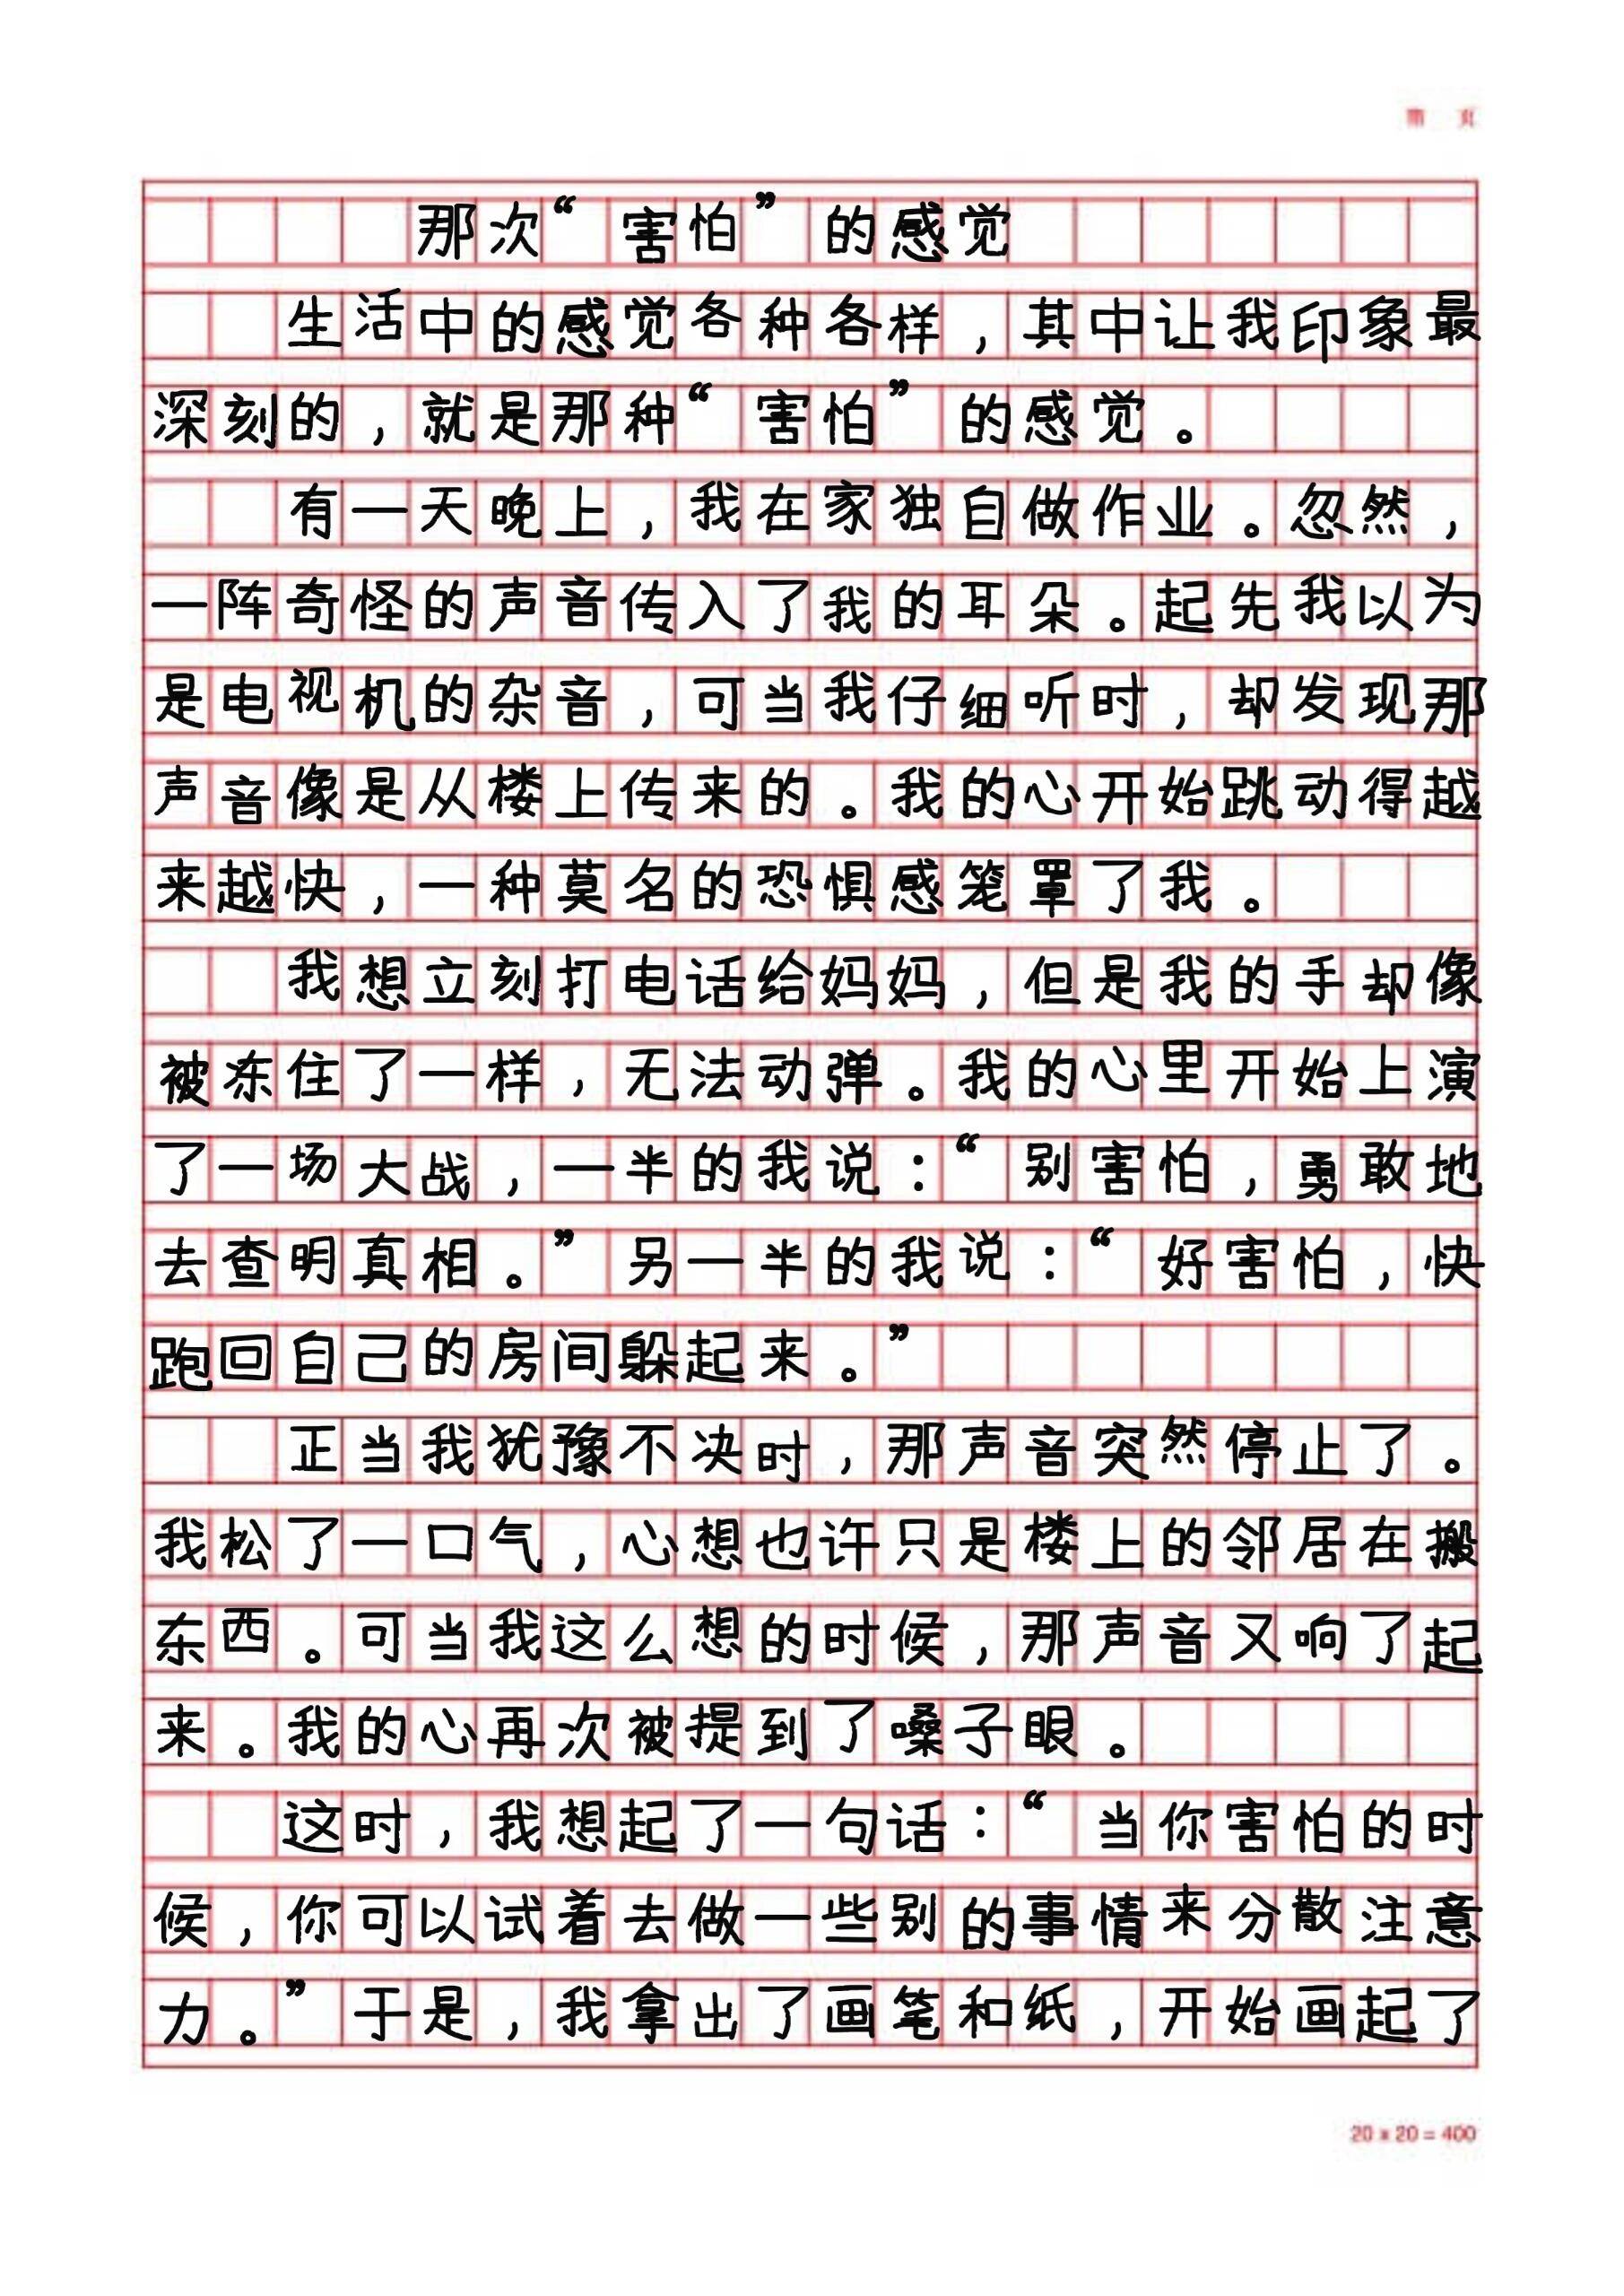 第 页
那次“害怕”的感觉
生活中的感觉各种各样，其中让我印象最
深刻的，就是那种“害怕”的感觉。
有一天晚上，我在家独自做作业。忽然，
一阵奇怪的声音传入了我的耳朵。起先我以为
是电视机的杂音，可当我仔细听时，却发现那
声音像是从楼上传来的。我的心开始跳动得越
来越快，一种莫名的恐惧感笼罩了我。
我想立刻打电话给妈妈，但是我的手却像
被冻住了一样，无法动弹。我的心里开始上演
了一场大战，一半的我说：“别害怕，勇敢地
去查明真相。”另一半的我说：“好害怕，快
跑回自己的房间躲起来。”
正当我犹豫不决时，那声音突然停止了。
我松了一口气，心想也许只是楼上的邻居在搬
东西。可当我这么想的时候，那声音又响了起
来。我的心再次被提到了嗓子眼。
这时，我想起了一句话：“当你害怕的时
候，你可以试着去做一些别的事情来分散注意
力。”于是，我拿出了画笔和纸，开始画起了
20 x 20 = 400